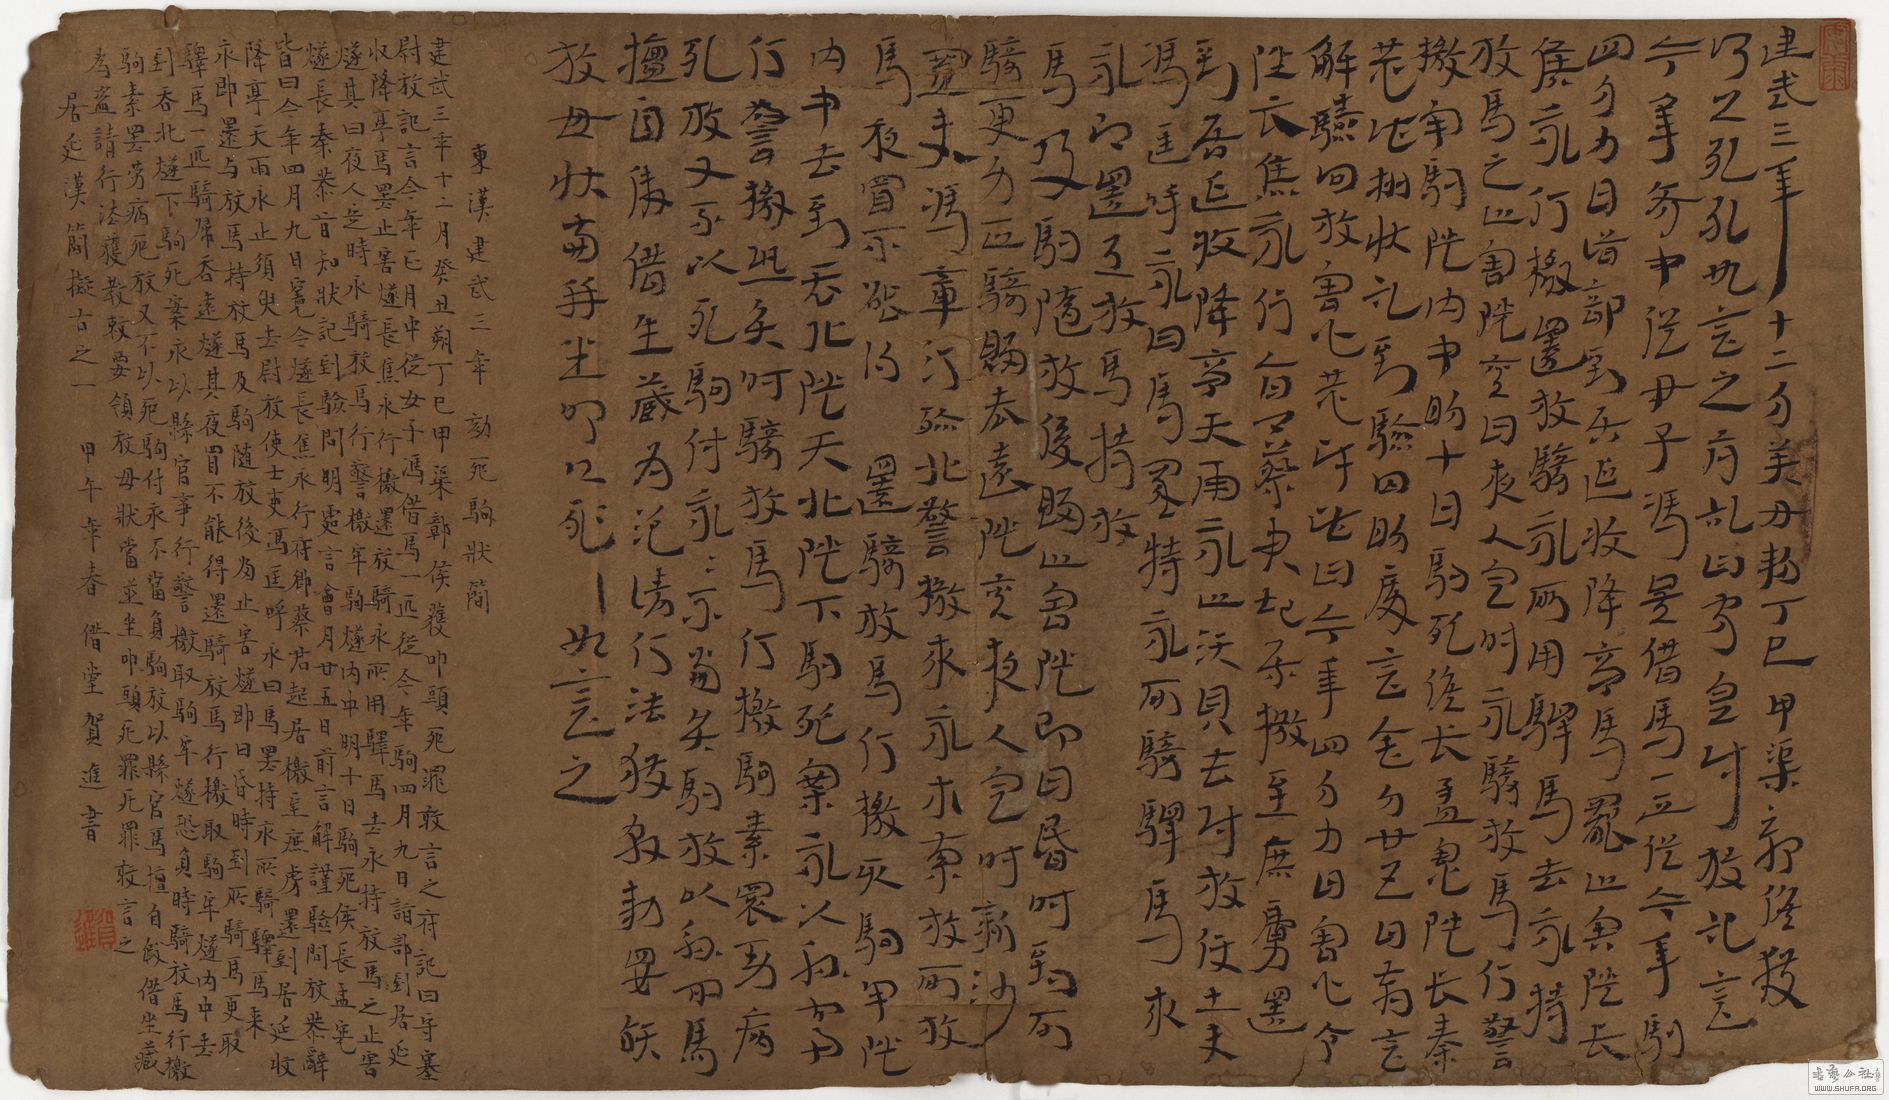 建武三年十二月癸丑朔丁巳甲渠鄣候獲
叩頭死罪敢言之府記曰守塞尉放記言
今年正月中從女子馮㬜借馬一匹從今年駒
四月九日詣部到居延收降亭馬罷止害隧長
焦永行檄還放騎永所用驛馬去永持
放馬之止害隧其曰夜人定時永騎放馬行警
檄牢駒隧內中明十日駒死候長孟憲隧長秦
恭皆知狀記到驗問明處言會月廿五日前言
解謹驗問放憲恭辭皆曰今年四月九日憲令
隧長焦永行府卿蔡君起居檄至庶虜還
到居延收降亭天雨永止須臾去尉放使士吏
馮匡呼永曰馬罷持永所騎驛馬來
永即還與放馬持放
馬及駒隨放後歸止害隧即日昏時到所
騎更取匹騎歸吞遠隧其夜人定時新沙
置吏馮章行殄北警檄來永求索放所放
馬夜冒不能得還騎放馬行檄取駒牢隧
內中去到吞北隧下駒死案永以縣官事
行警檄恐負時騎放馬行檄駒素罷勞病
死放又不以死駒付永永不當負駒放以縣官馬
擅自假借坐藏為盜請行法獲教敕要領
放毋狀當并坐叩頭死罪敢言之
東漢建武三年 劾死駒狀簡
建武三年十二月癸丑朔丁巳甲渠鄣候獲叩頭死罪敢言之府記曰守塞
尉放記言今年正月中從女子馮借馬一匹從今年駒四月九日詣部到居延
收降亭馬罷止害燧長焦永行檄還放騎永所用驛馬去永持放馬之止害
燧其曰夜人定時永騎放馬行警檄牢駒燧內中明十日駒死候長孟憲
燧長秦恭皆知狀記到驗問明處言會月廿五日前言解謹驗問放恭辭
皆曰今年四月九日憲令燧長焦永行府卿蔡君起居檄至庶虜還到居延收
降亭天雨永止須臾去尉放使士吏馮匡呼永曰馬罷持永所騎驛馬來
永即還与放馬持放馬及駒隨放後歸止害燧即日昏時到所騎馬更取
驛馬一匹騎歸吞遠燧其夜冒不能得還騎放馬行檄取駒牢燧內中去
到吞北燧下駒死案永以縣官事行警檄取駒牢燧恐負時騎放馬行檄
駒素罷勞病死放又不以死駒付永不當負駒放以縣官馬擅自假借坐藏
為盜請行法獲教敕要領放毋狀當並坐叩頭死罪死罪敢言之
居延漢簡擬古之一 甲午年春 借堂賀進書
WWW.SHUFA.ORG